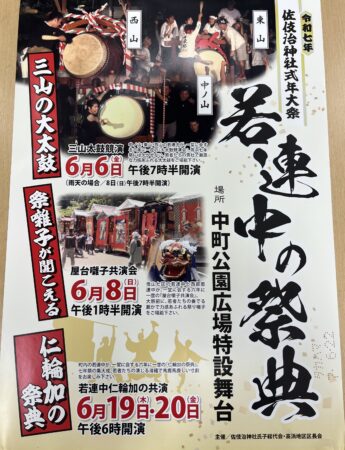 令和七年
佐伎治神社式年大祭
若連中の祭典
場所 中町公園広場特設舞台
東山
中ノ山
西山
三山の大太鼓
三山太鼓競演
6月6日(金) 午後7時半開演
(雨天の場合/8日(日)午後7時半開演)
祭囃子が聞こえる
屋台囃子共演会
6月8日(日)
午後1時半開演
仁輪加の祭典
若連中仁輪加の共演
6月19日(木)・20日(金)
午後6時開演
主催/佐伎治神社氏子総代会・高浜地区区長会